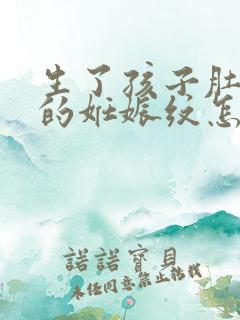 生了孩子肚
的妊娠纹怎
諾諾寶貝
未任同意禁止轉載